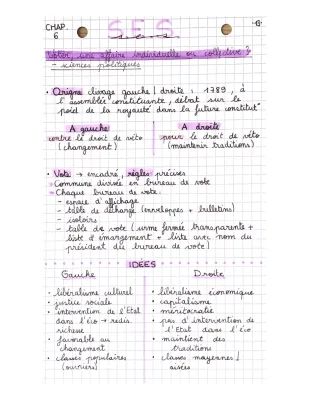 CHAP. 6
SES
-6-
Voter, une affaire individuelle ou collective ?
- sciences politiques
• Origine clivage gauche | droite : 1789, à
l'assemblée constituante, débat sur le
poid de la royauté dans la future constitut°
A gauche
contre le droit de véto
(changement)
A droite
pour le droit de véto
(maintenir traditions)
• Vote → encadré, règles précises
Commune divisée en bureau de vote
Chaque bureau de vote
- espace d'affichage
- table de décharge (enveloppes + bulletins)
- isoloirs
- table de vote (urne fermée transparente +
liste d'émargement + liste avec nom du
président du bureau de vote)
IDÉES
Gauche
• libéralisme culturel
• justice sociale
• intervention de l'Etat
dans l'éco → redis.
richesse
• favorable au
changement
• classes populaires
(ouvriers)
Droite
• libéralisme économique
• capitalisme
• méritocratie
• pas d'intervention de
l'Etat dans l'éco
• maintient des
traditions
• classes moyennes |
aisées